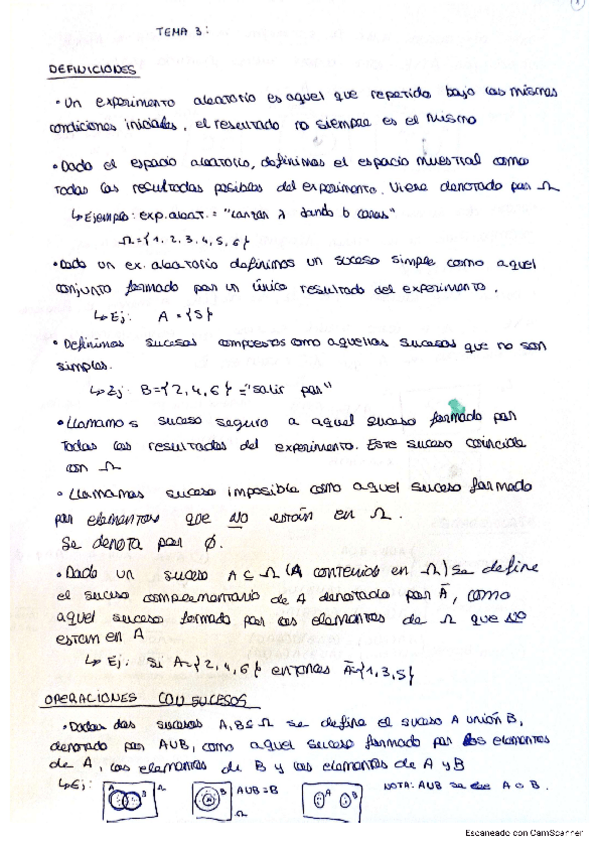 TEMA 3:
DEFINICIONES
• Un experimento aleatorio es aquel que repetido bajo las mismas
condiciones iniciales, el resultado no siempre es el mismo
• Dado el espacio aleatorio, definimos el espacio muestral como
todos los resultados posibles del experimento. Viene denotado por Ω
↳ Ejemplo: exp. aleat. = "lanzar 1 dando 6 caras"
Ω = {1, 2, 3, 4, 5, 6}
• Dado un ex. aleatorio definimos un suceso simple como aquel
conjunto formado por un único resultado del experimento.
↳ Ej: A = {5}
• Definimos sucesos compuestos como aquellos sucesos que no son
simples.
↳ Ej: B = {2, 4, 6} = "salir par"
• Llamamos suceso seguro a aquel suceso formado por
todos los resultados del experimento. Este suceso coincide
con Ω
• Llamamos suceso imposible como aquel suceso formado
por elementos que no están en Ω.
Se denota por Ø.
• Dado un suceso A ⊆ Ω (A contenido en Ω) se define
el suceso complementario de A denotado por Ā, como
aquel suceso formado por los elementos de Ω que no
estan en A
↳ Ej: Si A = {2, 4, 6} entonces Ā = {1, 3, 5}
OPERACIONES CON SUCESOS
• Dados dos sucesos A, B ⊆ Ω se define el suceso A unión B,
denotado por AUB, como aquel suceso formado por los elementos
de A, los elementos de B y los elementos de A y B
↳ Ej: A B Ω AUB = B Ω A B NOTA: AUB se lee A o B.
Escaneado con CamScanner